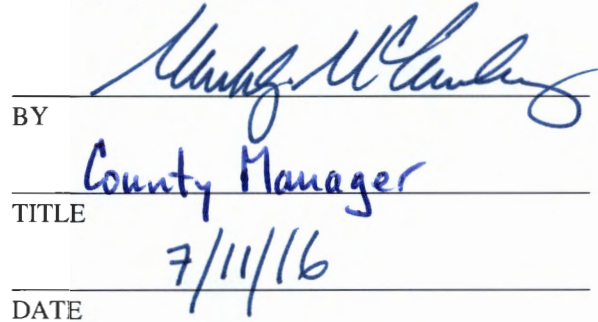 BY
County Manager
TITLE
7/11/16
DATE